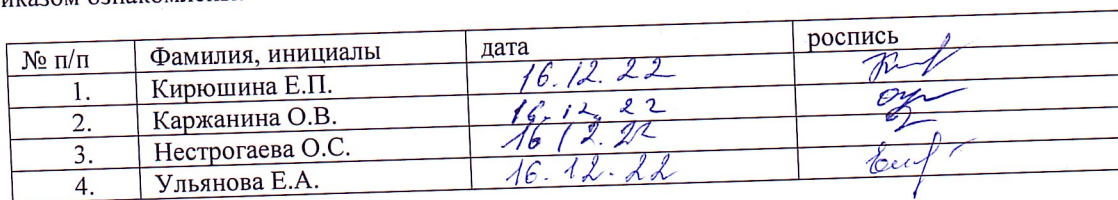 иказом ознакомлен
№ п/п Фамилия, инициалы дата роспись
1. Кирюшина Е.П. 16.12.22
2. Каржанина О.В. 16.12.22
3. Нестрогаева О.С. 16 12.22
4. Ульянова Е.А. 16.12.22